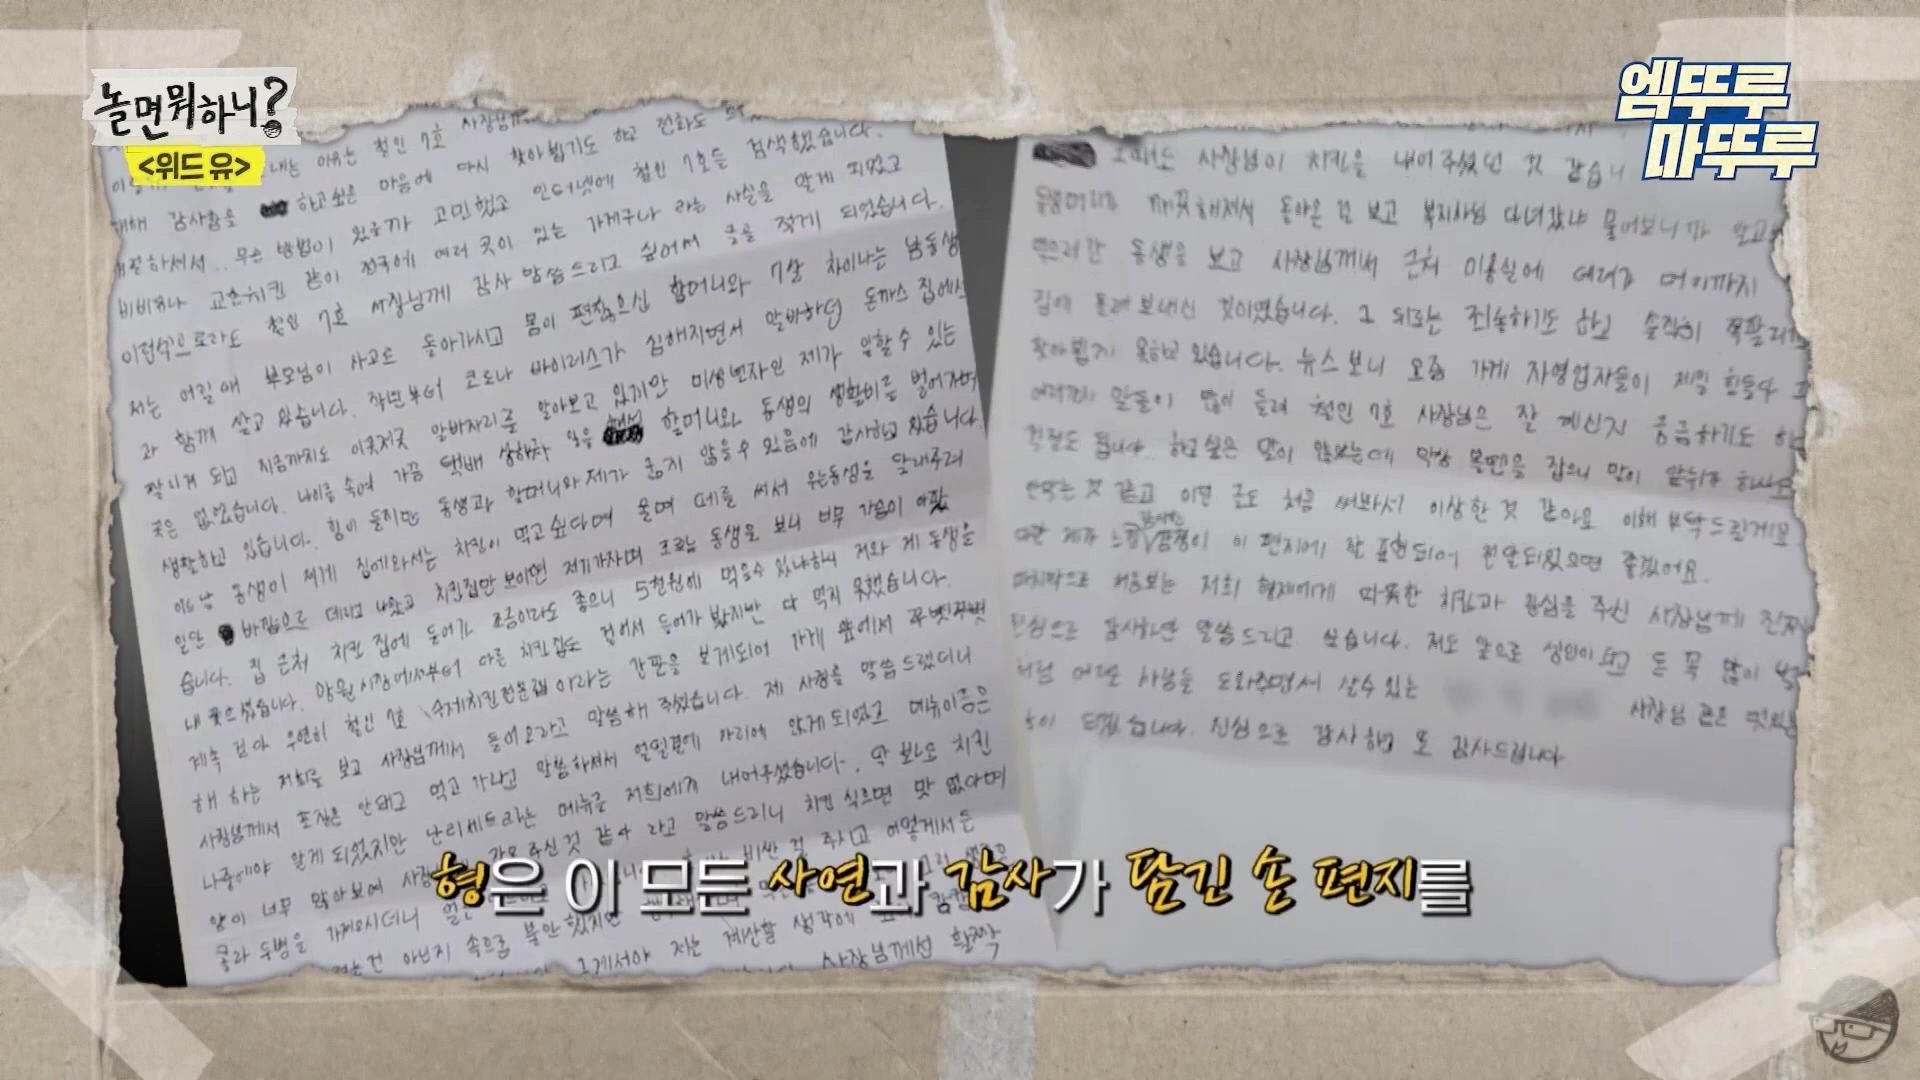 놀면뭐하니?
<위드 유>
엠뚜루
마뚜루
이유는 철인 7호 사장님께
대해 감사함을 하고싶은 마음에 다시 찾아뵙기도 하고 전화도
무슨 방법이 있을까 고민했고 인터넷에 철인 7호를 검색했습니다.
비비큐나 교촌치킨 같이 전국에 여러 곳이 있는 가게구나 라는 사실을 알게 되었고
이런식으로라도 철인 7호 사장님께 감사 말씀드리고 싶어서 글을 적게 되었습니다.
저는 어릴때 부모님이 사고로 돌아가시고 몸이 편찮으신 할머니와 7살 차이나는 남동생
과 함께 살고 있습니다. 작년부터 코로나 바이러스가 심해지면서 알바하던 돈까스 집에서
짤리게 되고 지금까지도 이곳저곳 알바자리를 알아보고 있지만 미성년자인 제가 일할 수 있는
곳은 없었습니다. 나이를 속여 가끔 택배 상하차 일을 할머니와 동생의 생활비를 벌어가며
생활하고 있습니다. 힘이 들지만 동생과 할머니와 제가 굶지 않을수 있음에 감사하고 있습니다.
어느날 동생이 제게 집에와서는 치킨이 먹고싶다며 울며 떼를 써서 우는동생을 달래주려
일단 바깥으로 데리고 나왔고 치킨집만 보이면 저기가자며 조르는 동생을 보니 너무 가슴이 아팠
습니다. 집 근처 치킨 집에 들어가 조금이라도 좋으니 5천원에 먹을수 있냐하니 저와 제 동생을
내 쫓으셨습니다. 망원시장에서부터 다른 치킨집도 걸어서 들어가 봤지만 다 먹지 못했습니다.
계속 걷다 우연히 철인 7호 수제치킨전문점이라는 간판을 보게되어 가게 앞에서 쭈뼛쭈뼛
해 하는 저희를 보고 사장님께서 들어오라고 말씀해 주셨습니다. 제 사정을 말씀 드렸더니
사장님께서 포장은 안돼고 먹고 가라고 말씀하셔서 얼떨결에 자리에 앉게되었고 메뉴이름은
나중에야 알게 되었지만 난리세트라는 메뉴를 저희에게 내어주셨습니다. 딱 봐도 치킨
양이 너무 많아보여 잘못 주신것 같다 라고 말씀드리니 치킨 식으면 맛 없다며
콜라 두병을 가져오시더니 비싼 걸 주시고
아닌지 속으로 불안했지만
그제서야 저는 계산할 생각에
사장님께선 활짝
사장님이 치킨을 내어주셨던 것 같습니
깨끗해져서 돌아온 걸 보고 복지사님 다녀갔냐 물어보니까 알고
먹으러간 동생을 보고 사장님께서 근처 미용실에 데려가 머리까지
집에 돌려보내신 것이였습니다. 그 뒤로는 죄송하기도 하고 솔직히 쪽팔리기도
찾아뵙지 못하고 있습니다. 뉴스 보니 요즘 가게 자영업자들이 제일 힘들다
여러가지 말들이 많이 들려 철인 7호 사장님은 잘 계신지 궁금하기도 하고
걱정도 됩니다. 하고 싶은 말이 많았는데 막상 볼펜을 잡으니 말이 앞뒤가
안맞는 것 같고 이런 글도 처음 써봐서 이상한 것 같아요 이해 부탁드릴게요
다만 제가 느낀 감사한 감정이 이 편지에 잘 표현되어 전달되었으면 좋겠어요.
마지막으로 처음보는 저희 형제에게 따뜻한 치킨과 관심을 주신 사장님께 진심
진심으로 감사하단 말씀 드리고 싶습니다. 저도 앞으로 성인이 되고 돈 꼭 많이
처럼 어려운 사람을 도와주면서 살수있는 사장님 같은 멋있는
되겠습니다. 진심으로 감사하고 또 감사드립니다.
형은 이 모든 사연과 감사가 담긴 손 편지를